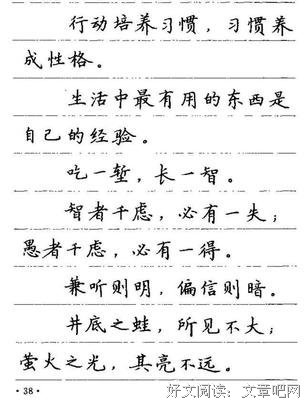 行动培养习惯，习惯养
成性格。
生活中最有用的东西是
自己的经验。
吃一堑，长一智。
智者千虑，必有一失；
愚者千虑，必有一得。
兼听则明，偏信则暗。
井底之蛙，所见不大；
萤火之光，其亮不远。
·38·
好文阅读：文章吧网